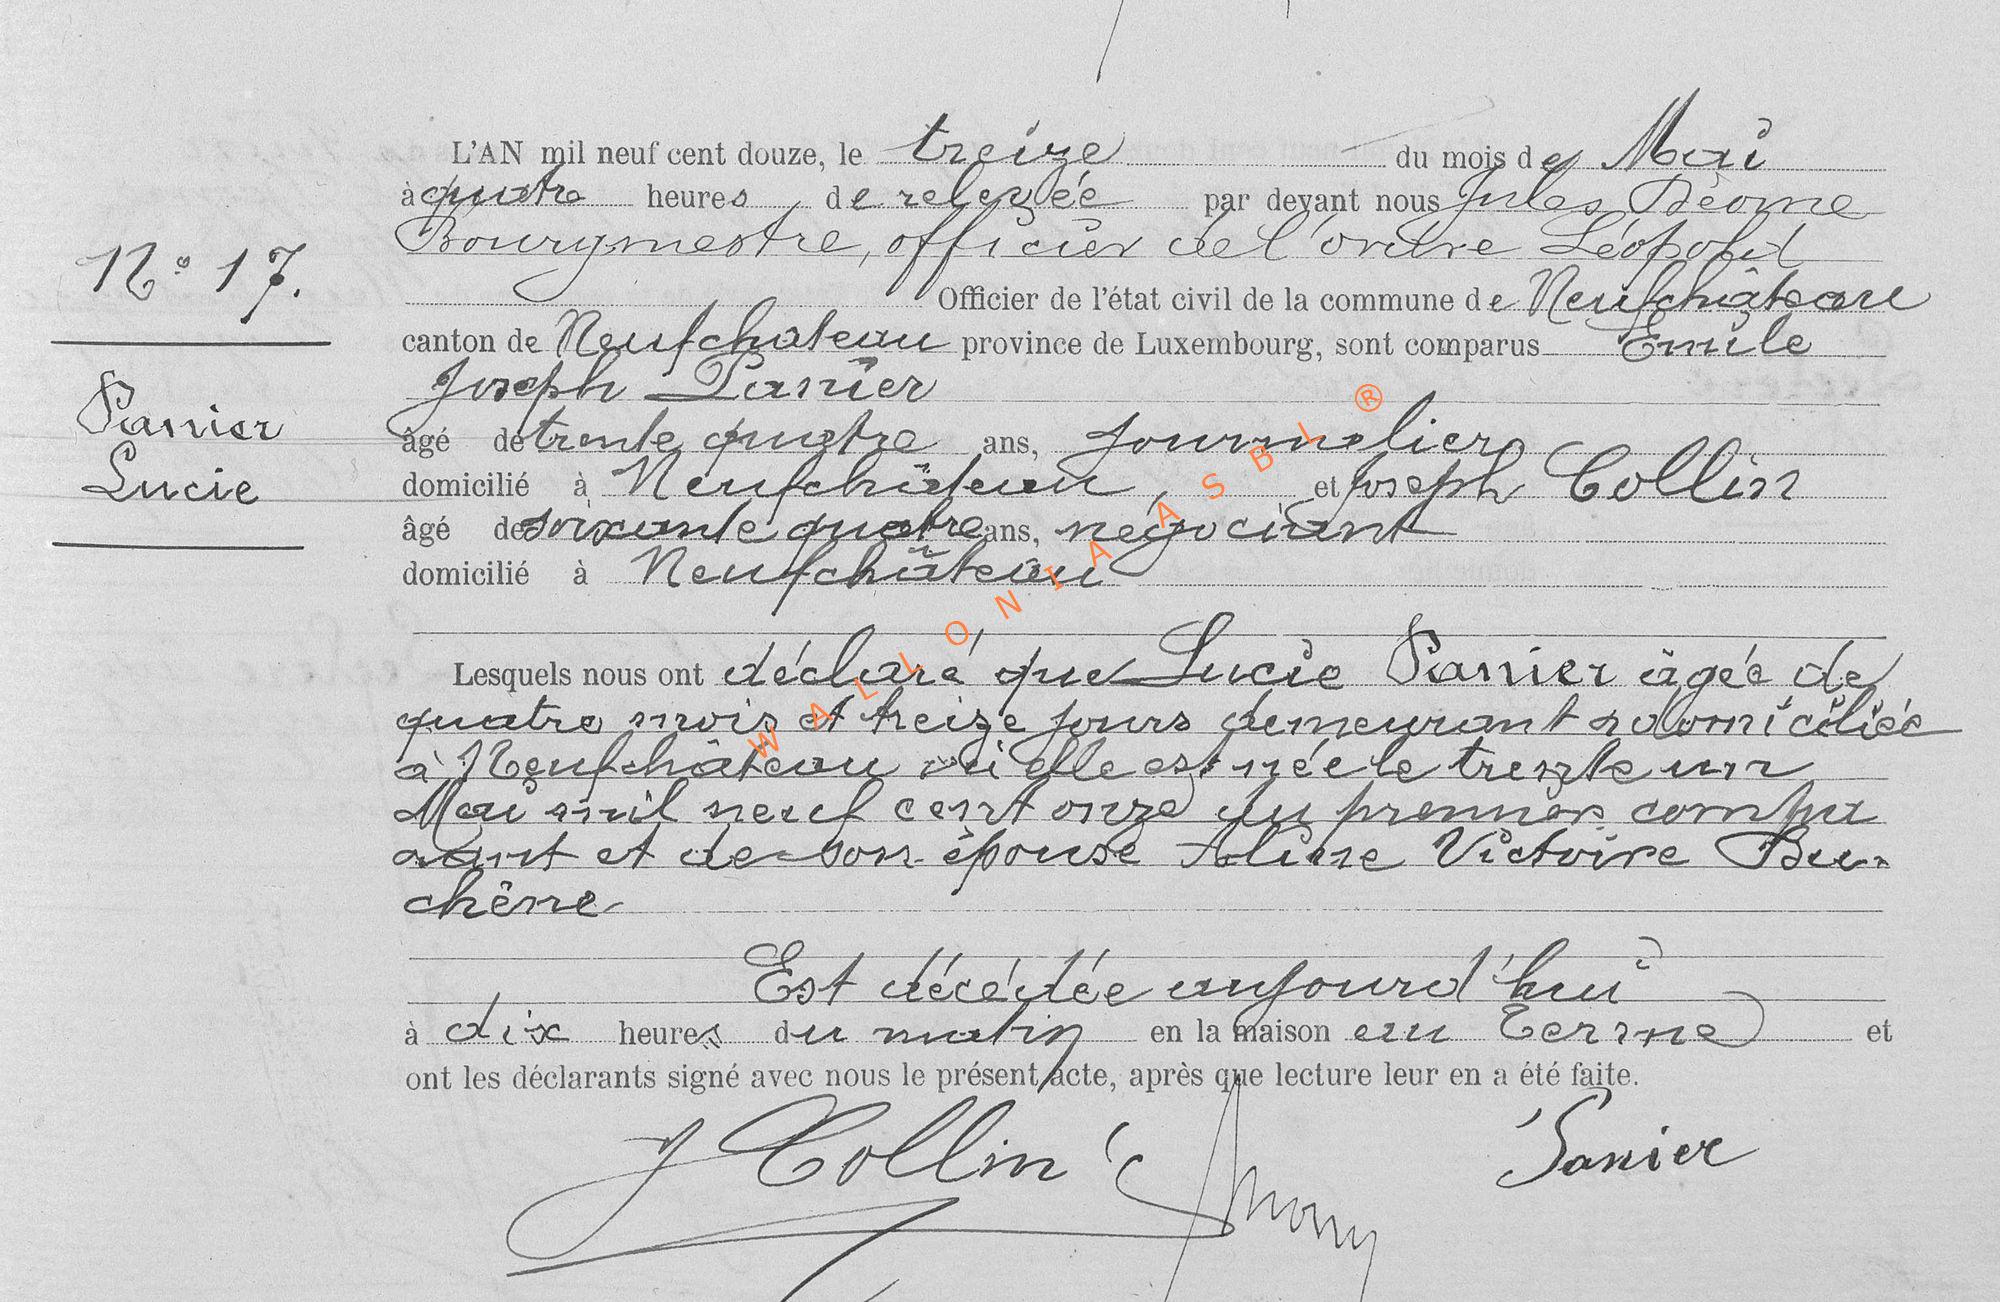 L'AN mil neuf cent douze, le treize du mois de Mai
à quatre heures de relevée par devant nous Jules
Bourgmestre, officier de l'ordre Léopold
Officier de l'état civil de la commune de Neufchâteau
canton de Neufchateau province de Luxembourg, sont comparus Emile
Joseph Panier
N° 17.
Panier
Lucie
âgé de trente quatre ans, journalier
domicilié à Neufchâteau, et Joseph Collin
âgé de soixante quatre ans, négociant
domicilié à Neufchâteau
Lesquels nous ont déclaré que Lucie Panier âgée de
quatre mois et treize jours demeurant domiciliée
à Neufchâteau où elle est née le trente un
Mai mil neuf cent onze du premier compa
rant et de son épouse Aline Victoire Du-
chêne
Est décédée aujourd'hui
à dix heures du matin en la maison au Terme et
ont les déclarants signé avec nous le présent acte, après que lecture leur en a été faite.
J Collin Panier
WALLONIA ASBL ®